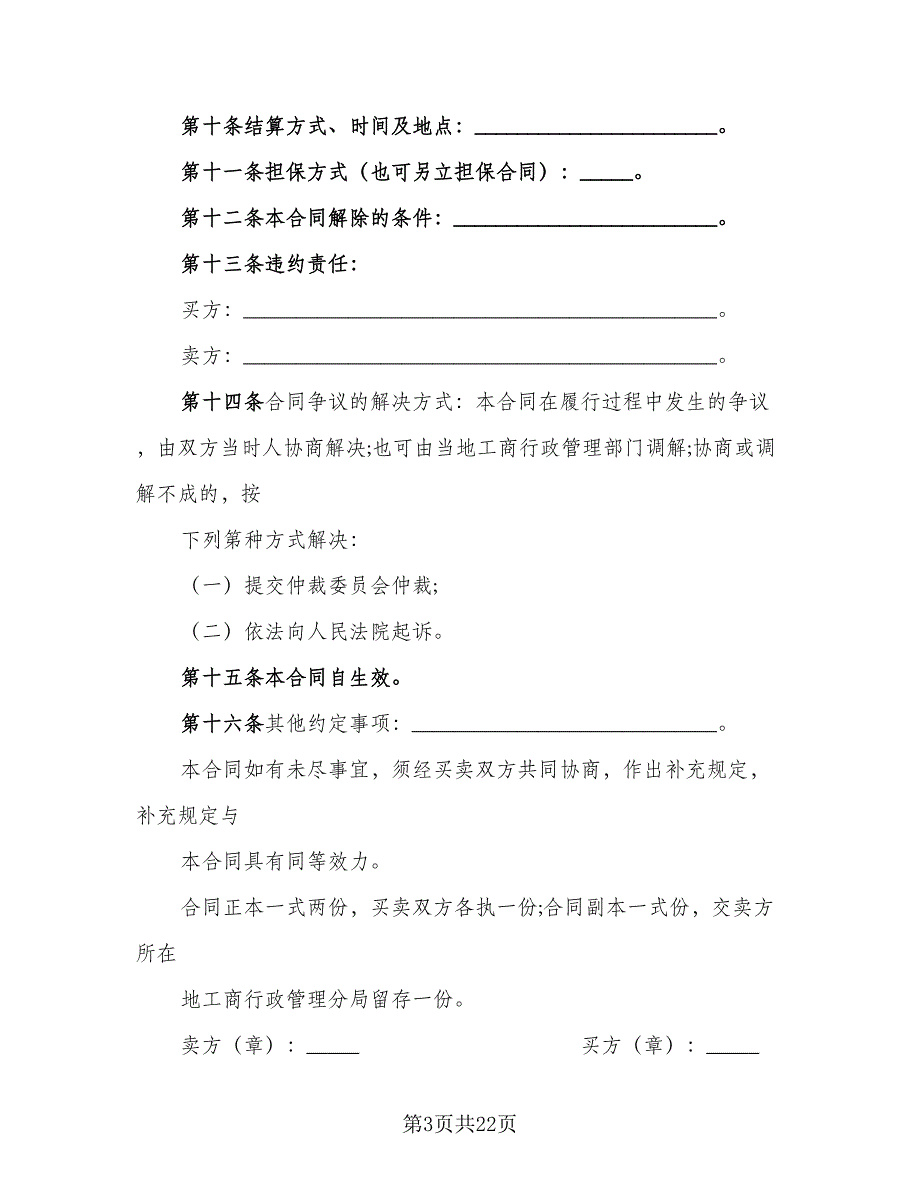 第十条结算方式、时间及地点：_______________________。
第十一条担保方式（也可另立担保合同）：_____。
第十二条本合同解除的条件：_________________________。
第十三条违约责任：
买方：_____________________________________________。
卖方：_____________________________________________。
第十四条合同争议的解决方式：本合同在履行过程中发生的争议
，由双方当时人协商解决;也可由当地工商行政管理部门调解;协商或调
解不成的，按
下列第种方式解决：
（一）提交仲裁委员会仲裁;
（二）依法向人民法院起诉。
第十五条本合同自生效。
第十六条其他约定事项：_____________________________。
本合同如有未尽事宜，须经买卖双方共同协商，作出补充规定，
补充规定与
本合同具有同等效力。
合同正本一式两份，买卖双方各执一份;合同副本一式份，交卖方
所在
地工商行政管理分局留存一份。
卖方（章）：_____ 买方（章）：_____
第3页共22页